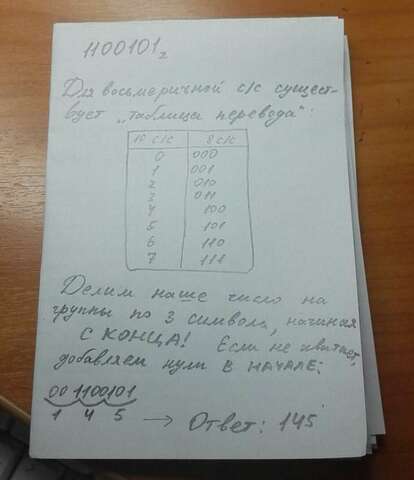 1100101₂
Для восьмеричной с/с сущест-
вует "таблица перевода".
10 с/с 8 с/с
0 000
1 001
2 010
3 011
4 100
5 101
6 110
7 111
Делим наше число на
группы по 3 символа, начиная
С КОНЦА! Если не хватает,
добавляем нули В НАЧАЛЕ:
001100101
1 4 5 → Ответ: 145